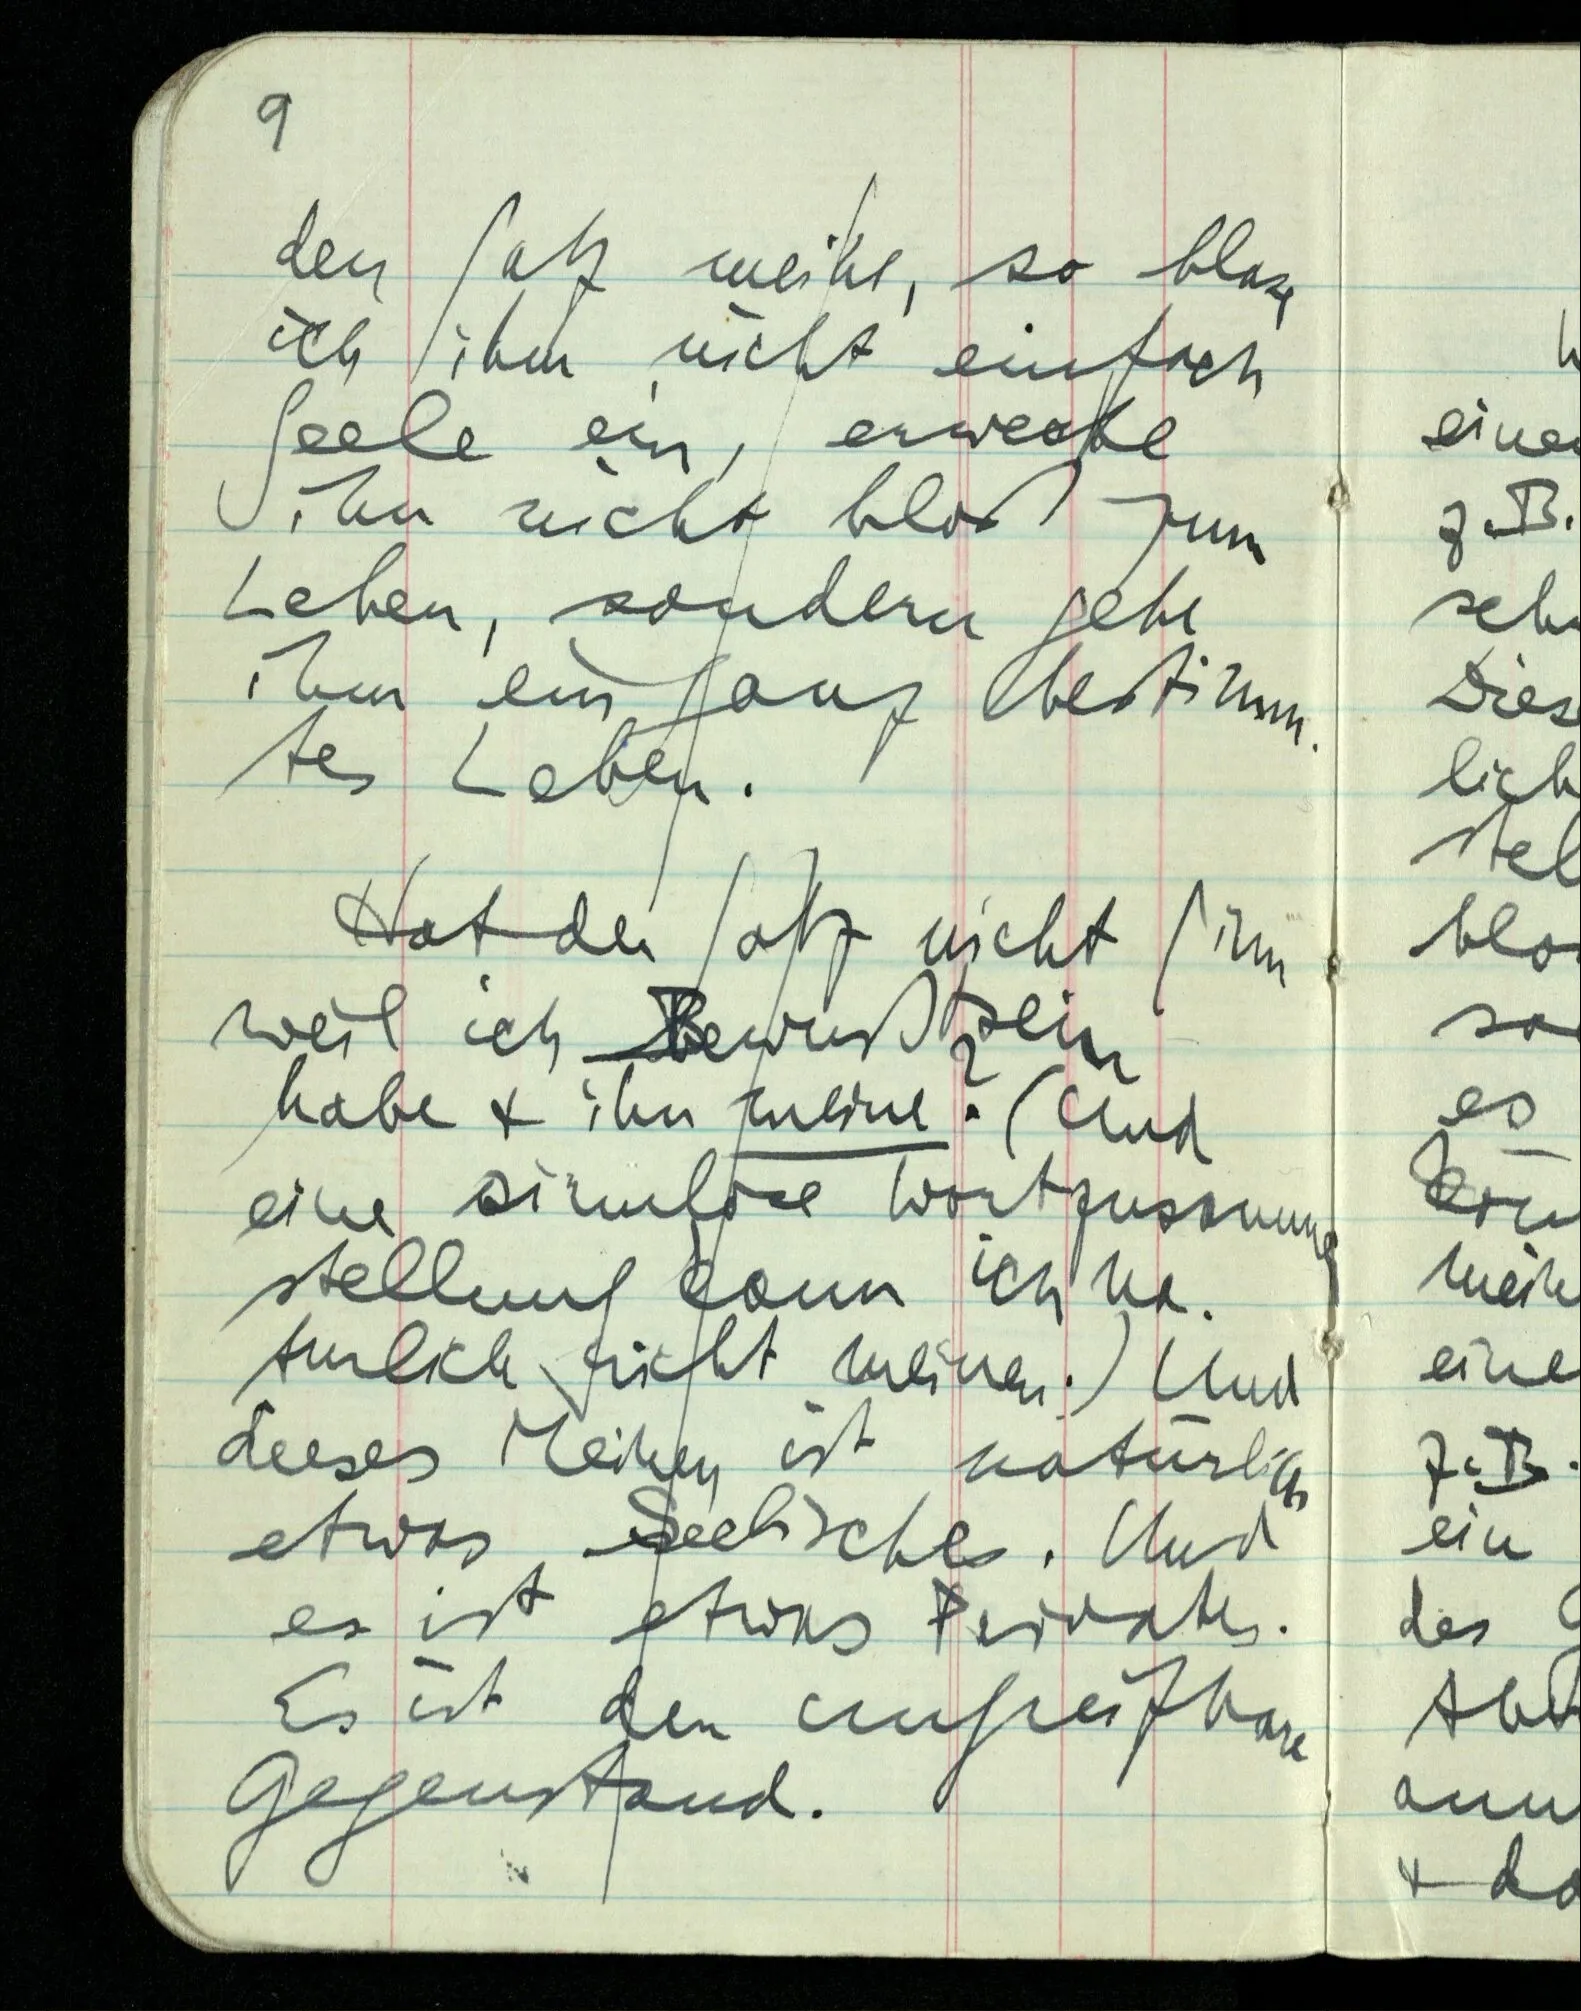 9
den Satz meine, so blase
ich ihm nicht einfach
Seele ein, erwecke
ihn nicht bloß zum
Leben, sondern gebe
ihm ein ganz bestimm-
tes Leben.
Hat der Satz nicht Sinn
weil ich Bewußtsein
habe & ihn meine? (Und
eine sinnlose Wortzusammen
stellung kann ich na-
turlich nicht meinen.) Und
dieses Meinen ist natürlich
etwas Seelisches. Und
es ist etwas Privates.
Es ist der ungreifbare
Gegenstand.
eine
z.B.
seh
Diese
lich
stel
blo
so
es
kön
mein
eine
z.B.
ein
des G
ann
& da